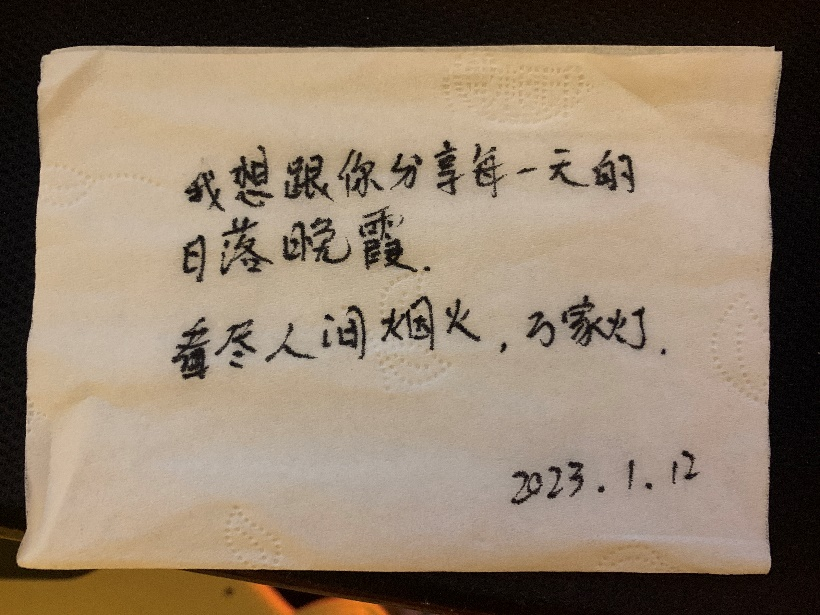 我想跟你分享每一天的
日落晚霞.
看尽人间烟火,万家灯.
2023.1.12